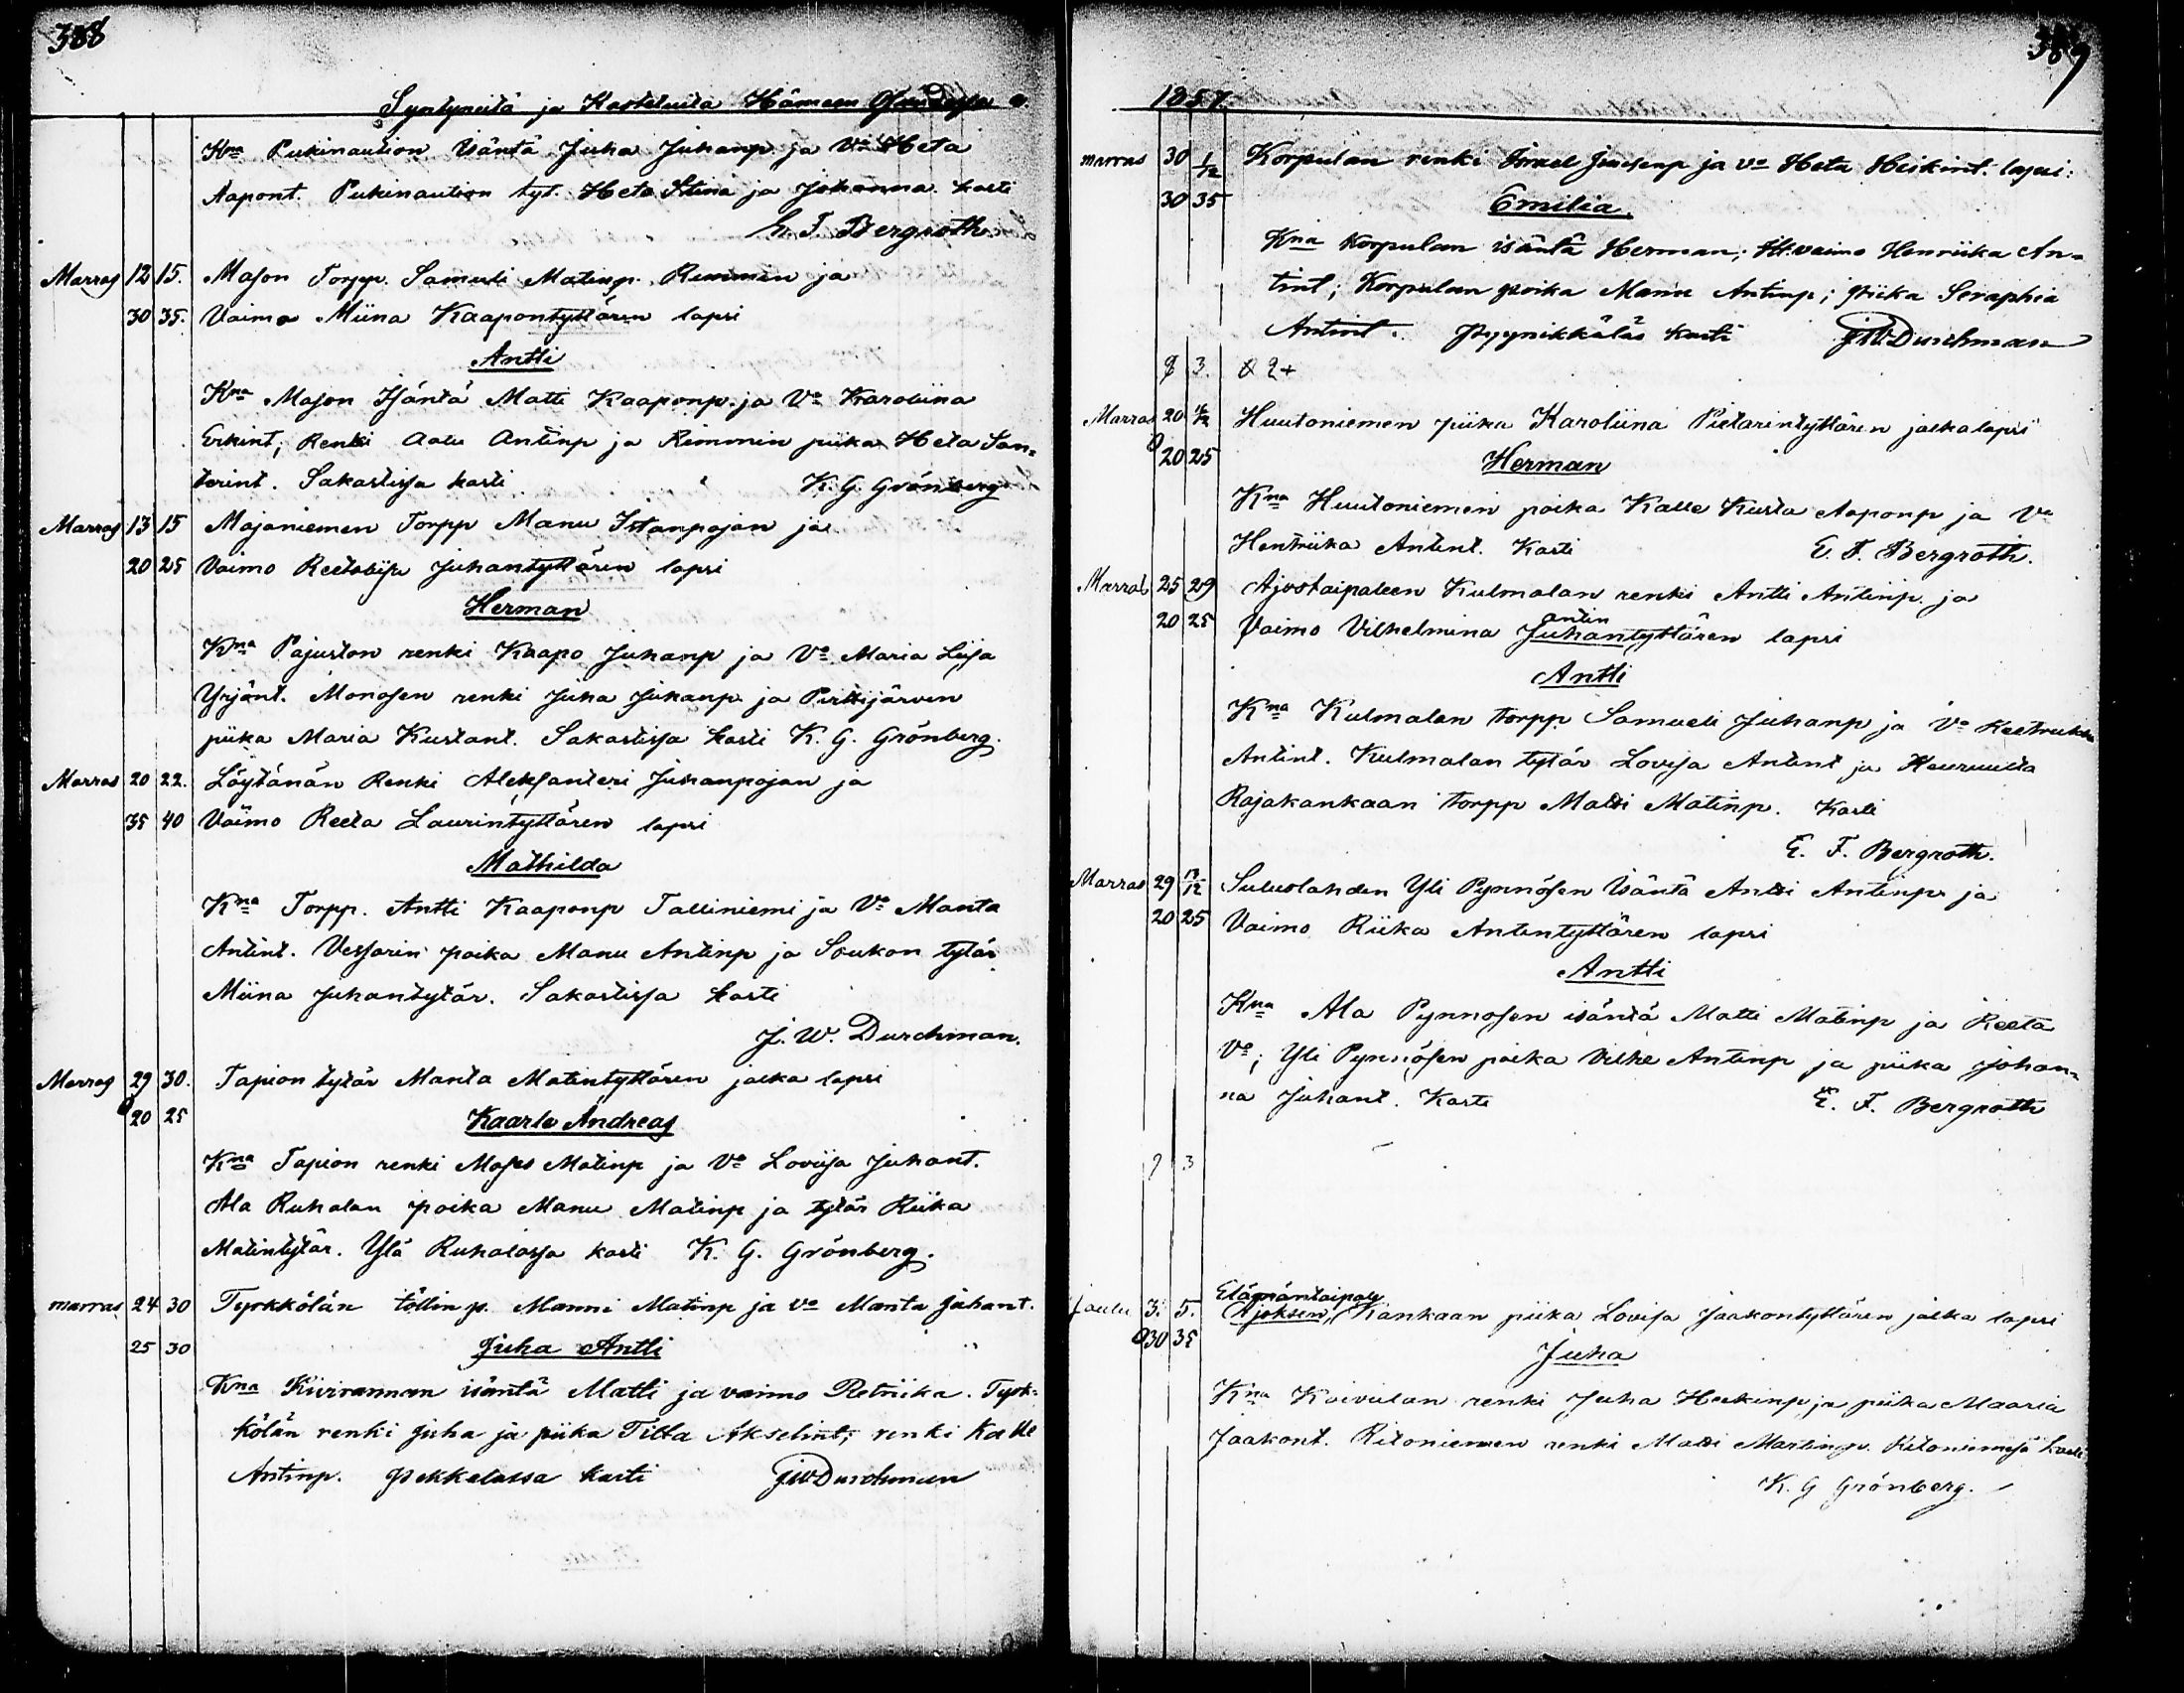 388
Syntyneitä ja Kastetuita Hämeen
Kna Pukinaution Isäntä Juha Juhanp ja Va Heta
Aapont. Pukinaution tyt. Heta Stina ja Johanna kasti
E. F. Bergroth.
Marras 12 15. Mason Torpp. Samuli Matinp. Rimmin ja
30 35. Vaimo Miina Kaapontyttären lapsi
Antti
Kna Mason Isäntä Matti Kaaponp. ja Va Karoliina
Erkint; Renki Aatu Antinp ja Rimmin piika Heta San-
terint. Sakastissa kasti K. G. Grönberg
Marras 13 15 Majaniemen Torpp Manu Istanpojan ja
20 25 Vaimo Reetaliisa Juhantyttären lapsi
Herman
Kna Pajuston renki Kaapo Juhanp ja Va Maria Liisa
Yrjönt. Monosen renki Juha Juhanp ja Pirttijärven
piika Maria Kustant. Sakastissa kasti K. G. Grönberg.
Marras 20 22. Löytänän Renki Aleksanteri Juhanpojan ja
35 40 Vaimo Reeta Laurintyttären lapsi
Mathilda
Kna Torpp. Antti Kaaponp Talliniemi ja Va Manta
Antint. Vessarin poika Manu Antinp ja Soukon tytär
Miina Juhantytär. Sakastissa kasti
J. W. Durchman.
Marras 29 30. Tapion tytär Manta Matintyttären jalka lapsi
20 25 Kaarle Andreas
Kna Tapion renki Moses Matinp ja Va Loviisa Juhant.
Ala Ruhalan poika Manu Matinp ja tytär Riika
Matintytär. Ylä Ruhalassa kasti K. G. Grönberg.
marras 24 30 Tyrkkölän töllin p. Manni Matinp ja va Manta Juhant.
25 30 Juha Antti
Kna Kivirannan isäntä Matti ja vaimo Retriika. Tyrk-
kölän renki Juha ja piika Tilta Akselint; renki Kalle
Antinp. Pekkalassa kasti JWDurchman
389
1857.
marras 30 1/12 Korpulan renki Israel ja va Heta Heikint. lapsi:
30 35 Emilia.
Kna Korpulan isäntä Herman; vaimo Henriika An-
tint; Korpulan poika Manu Antinp; piika Seraphia
Antint. Pyynikkäläs kasti JWDurchman
9 3. 2+
Marras 20 Huutoniemen piika Karoliina Pietarintyttären jalkalapsi
20 25 Herman
Kna Huutoniemen poika Kalle Kusta Aaponp ja Va
Hentriika Antint. Kasti E. F. Bergroth.
Marras 25 29 Ajostaipaleen Kulmalan renki Antti Antinp. ja
antin
20 25 Vaimo Vilhelmina Juhantyttären lapsi
Antti
Kna Kulmalan torpp Samueli Juhanp ja Va
Antint. Kulmalan tytär Lovisa Antint ja
Rajakankaan torpp Matti Matinp. Kasti
E. F. Bergroth.
Marras 29 13/12 Suluslahden Yli Pynnösen Isäntä Antti Antinp ja
20 25 Vaimo Riika Antintyttären lapsi
Antti
Kna Ala Pynnösen isäntä Matti Matinp ja Reeta
Va; Yli Pynnösen poika Vilhe Antinp ja piika Johan-
na Juhant. Kasti E. F. Bergroth
9 3
Elämäntaipale
Joulu 3. 5. Ajoksen, Kankaan piika Lovisa Jaakontyttären jalka lapsi
30 35 Juha
Kna Koivulan renki Juha Heikinp ja piika Maaria
Jaakont. Ritoniemen renki Matti Martinp. Ritoniemesä kasti
K. G Grönberg.